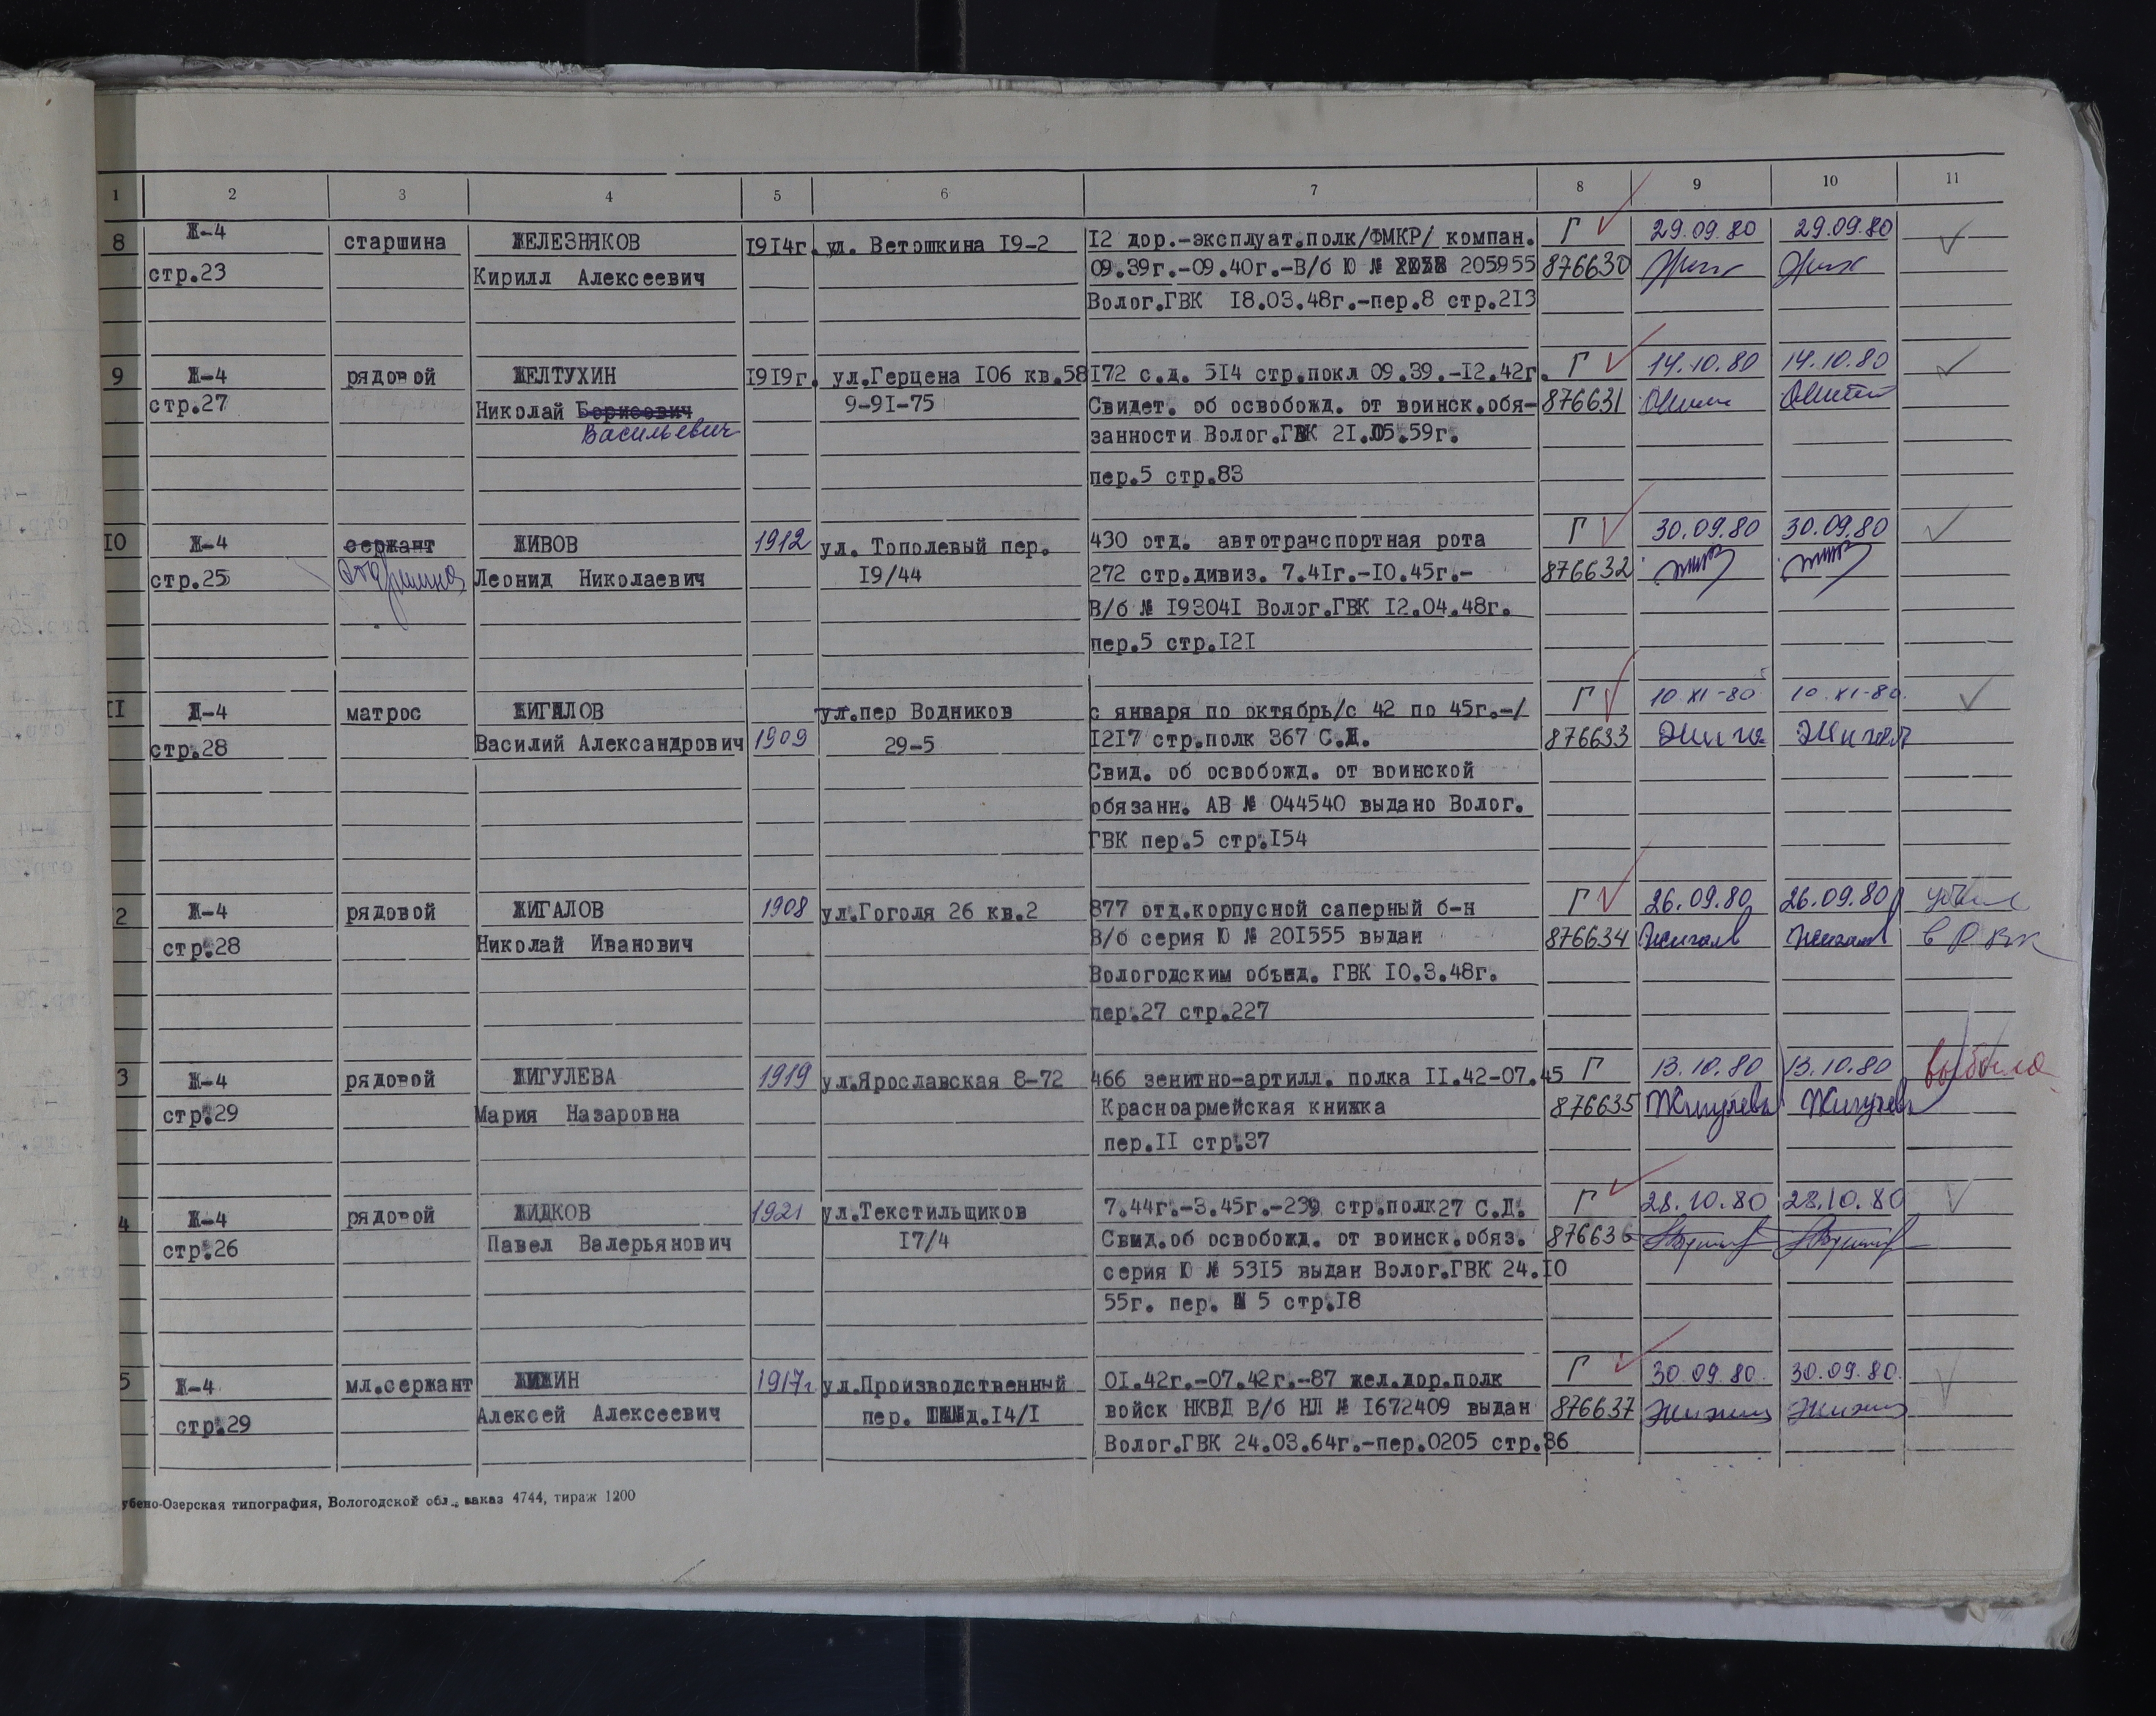 1 2 3 4 5 6 7 8 9 10 11
8 Ж-4 старшина ЖЕЛЕЗНЯКОВ 1914г. ул. Ветошкина 19-2 12 дор.-эксплуат.полк/ФМКР/ компан. Г 29.09.80 29.09.80
стр.23 Кирилл Алексеевич 09.39г.-09.40г.-В/б Ю № 205955 876630
Волог.ГВК 18.03.48г.-пер.8 стр.213
9 Ж-4 рядовой ЖЕЛТУХИН 1919г. ул.Герцена 106 кв.58 172 с.д. 514 стр.покл 09.39.-12.42г. Г 14.10.80 14.10.80
стр.27 Николай Борисович 9-91-75 Свидет. об освобожд. от воинск.обя- 876631
Васильевич занности Волог.ГВК 21.05.59г.
пер.5 стр.83
10 Ж-4 сержант ЖИВОВ 1912 ул. Тополевый пер. 430 отд. автотранспортная рота Г 30.09.80 30.09.80
стр.25 старшина Леонид Николаевич 19/44 272 стр.дивиз. 7.41г.-10.45г.- 876632
В/б № 193041 Волог.ГВК 12.04.48г.
пер.5 стр.121
11 Ж-4 матрос ЖИГАЛОВ ул.пер Водников с января по октябрь/с 42 по 45г.-/ Г 10.XI-80 10.XI-80.
стр.28 Василий Александрович 1909 29-5 1217 стр.полк 367 С.Д. 876633
Свид. об освобожд. от воинской
обязанн. АВ № 044540 выдано Волог.
ГВК пер.5 стр.154
2 Ж-4 рядовой ЖИГАЛОВ 1908 ул.Гоголя 26 кв.2 877 отд.корпусной саперный б-н Г 26.09.80 26.09.80 убыл
стр.28 Николай Иванович В/б серия Ю № 201555 выдан 876634 Жигалов Жигалов в РВК
Вологодским объед. ГВК 10.3.48г.
пер.27 стр.227
3 Ж-4 рядовой ЖИГУЛЕВА 1919 ул.Ярославская 8-72 466 зенитно-артилл. полка 11.42-07.45 Г 13.10.80 13.10.80 выбыла
стр.29 Мария Назаровна Красноармейская книжка 876635 Жигулева Жигулева
пер.11 стр.37
4 Ж-4 рядовой ЖИДКОВ 1921 ул.Текстильщиков 7.44г.-3.45г.-239 стр.полк27 С.Д. Г 28.10.80 28.10.80
стр.26 Павел Валерьянович 17/4 Свид.об освобожд. от воинск.обяз. 876636
серия Ю № 5315 выдан Волог.ГВК 24.10
55г. пер. № 5 стр.18
5 Ж-4 мл.сержант ЖИЖИН 1917г ул.Производственный 01.42г.-07.42г.-87 жел.дор.полк Г 30.09.80. 30.09.80.
стр.29 Алексей Алексеевич пер. д.14/1 войск НКВД В/б НЛ № 1672409 выдан 876637 Жижин Жижин
Волог.ГВК 24.03.64г.-пер.0205 стр.86
убено-Озерская типография, Вологодской обл., заказ 4744, тираж 1200